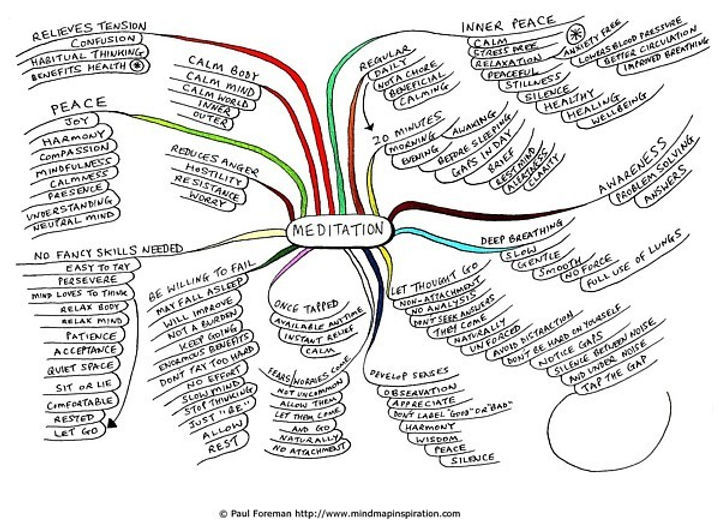 RELIEVES TENSION
CONFUSION
HABITUAL THINKING
BENEFITS HEALTH *
CALM BODY
CALM MIND
CALM WORLD
INNER
OUTER
PEACE
JOY
HARMONY
COMPASSION
MINDFULNESS
CALMNESS
PRESENCE
UNDERSTANDING
NEUTRAL MIND
REDUCES ANGER
HOSTILITY
RESISTANCE
WORRY
NO FANCY SKILLS NEEDED
EASY TO TRY
PERSEVERE
MIND LOVES TO THINK
RELAX BODY
RELAX MIND
PATIENCE
ACCEPTANCE
QUIET SPACE
SIT OR LIE
COMFORTABLE
RESTED
LET GO
BE WILLING TO FAIL
MAY FALL ASLEEP
WILL IMPROVE
NOT A BURDEN
KEEP GOING
ENORMOUS BENEFITS
DONT TRY TOO HARD
NO EFFORT
SLOW MIND
STOP THINKING
JUST "BE"
ALLOW
REST
MEDITATION
ONCE TAPPED
AVAILABLE ANYTIME
INSTANT RELIEF
CALM
FEARS/WORRIES COME
NOT UNCOMMON
ALLOW THEM
LET THEM COME
AND GO
NATURALLY
NO ATTACHMENT
DEVELOP SENSES
OBSERVATION
APPRECIATE
DON'T LABEL "GOOD" OR "BAD"
HARMONY
WISDOM
PEACE
SILENCE
LET THOUGHT GO
NON-ATTACHMENT
NO ANALYSIS
DON'T SEEK ANSWERS
THEY COME
NATURALLY
UNFORCED
AVOID DISTRACTION
DON'T BE HARD ON YOURSELF
NOTICE GAPS
SILENCE BETWEEN NOISE
AND UNDER NOISE
TAP THE GAP
DEEP BREATHING
SLOW
GENTLE
SMOOTH
NO FORCE
FULL USE OF LUNGS
AWARENESS
PROBLEM SOLVING
ANSWERS
REGULAR
DAILY
NOT A CHORE
BENEFICIAL
CALMING
20 MINUTES
MORNING
EVENING
AWAKING
BEFORE SLEEPING
GAPS IN DAY
BRIEF
REST MIND
ALERTNESS
CLARITY
INNER PEACE
CALM
STRESS FREE
RELAXATION
PEACEFUL
STILLNESS
SILENCE
HEALTHY
HEALING
WELLBEING
*
ANXIETY FREE
LOWERS BLOOD PRESSURE
BETTER CIRCULATION
IMPROVED BREATHING
© Paul Foreman http://www.mindmapinspiration.com